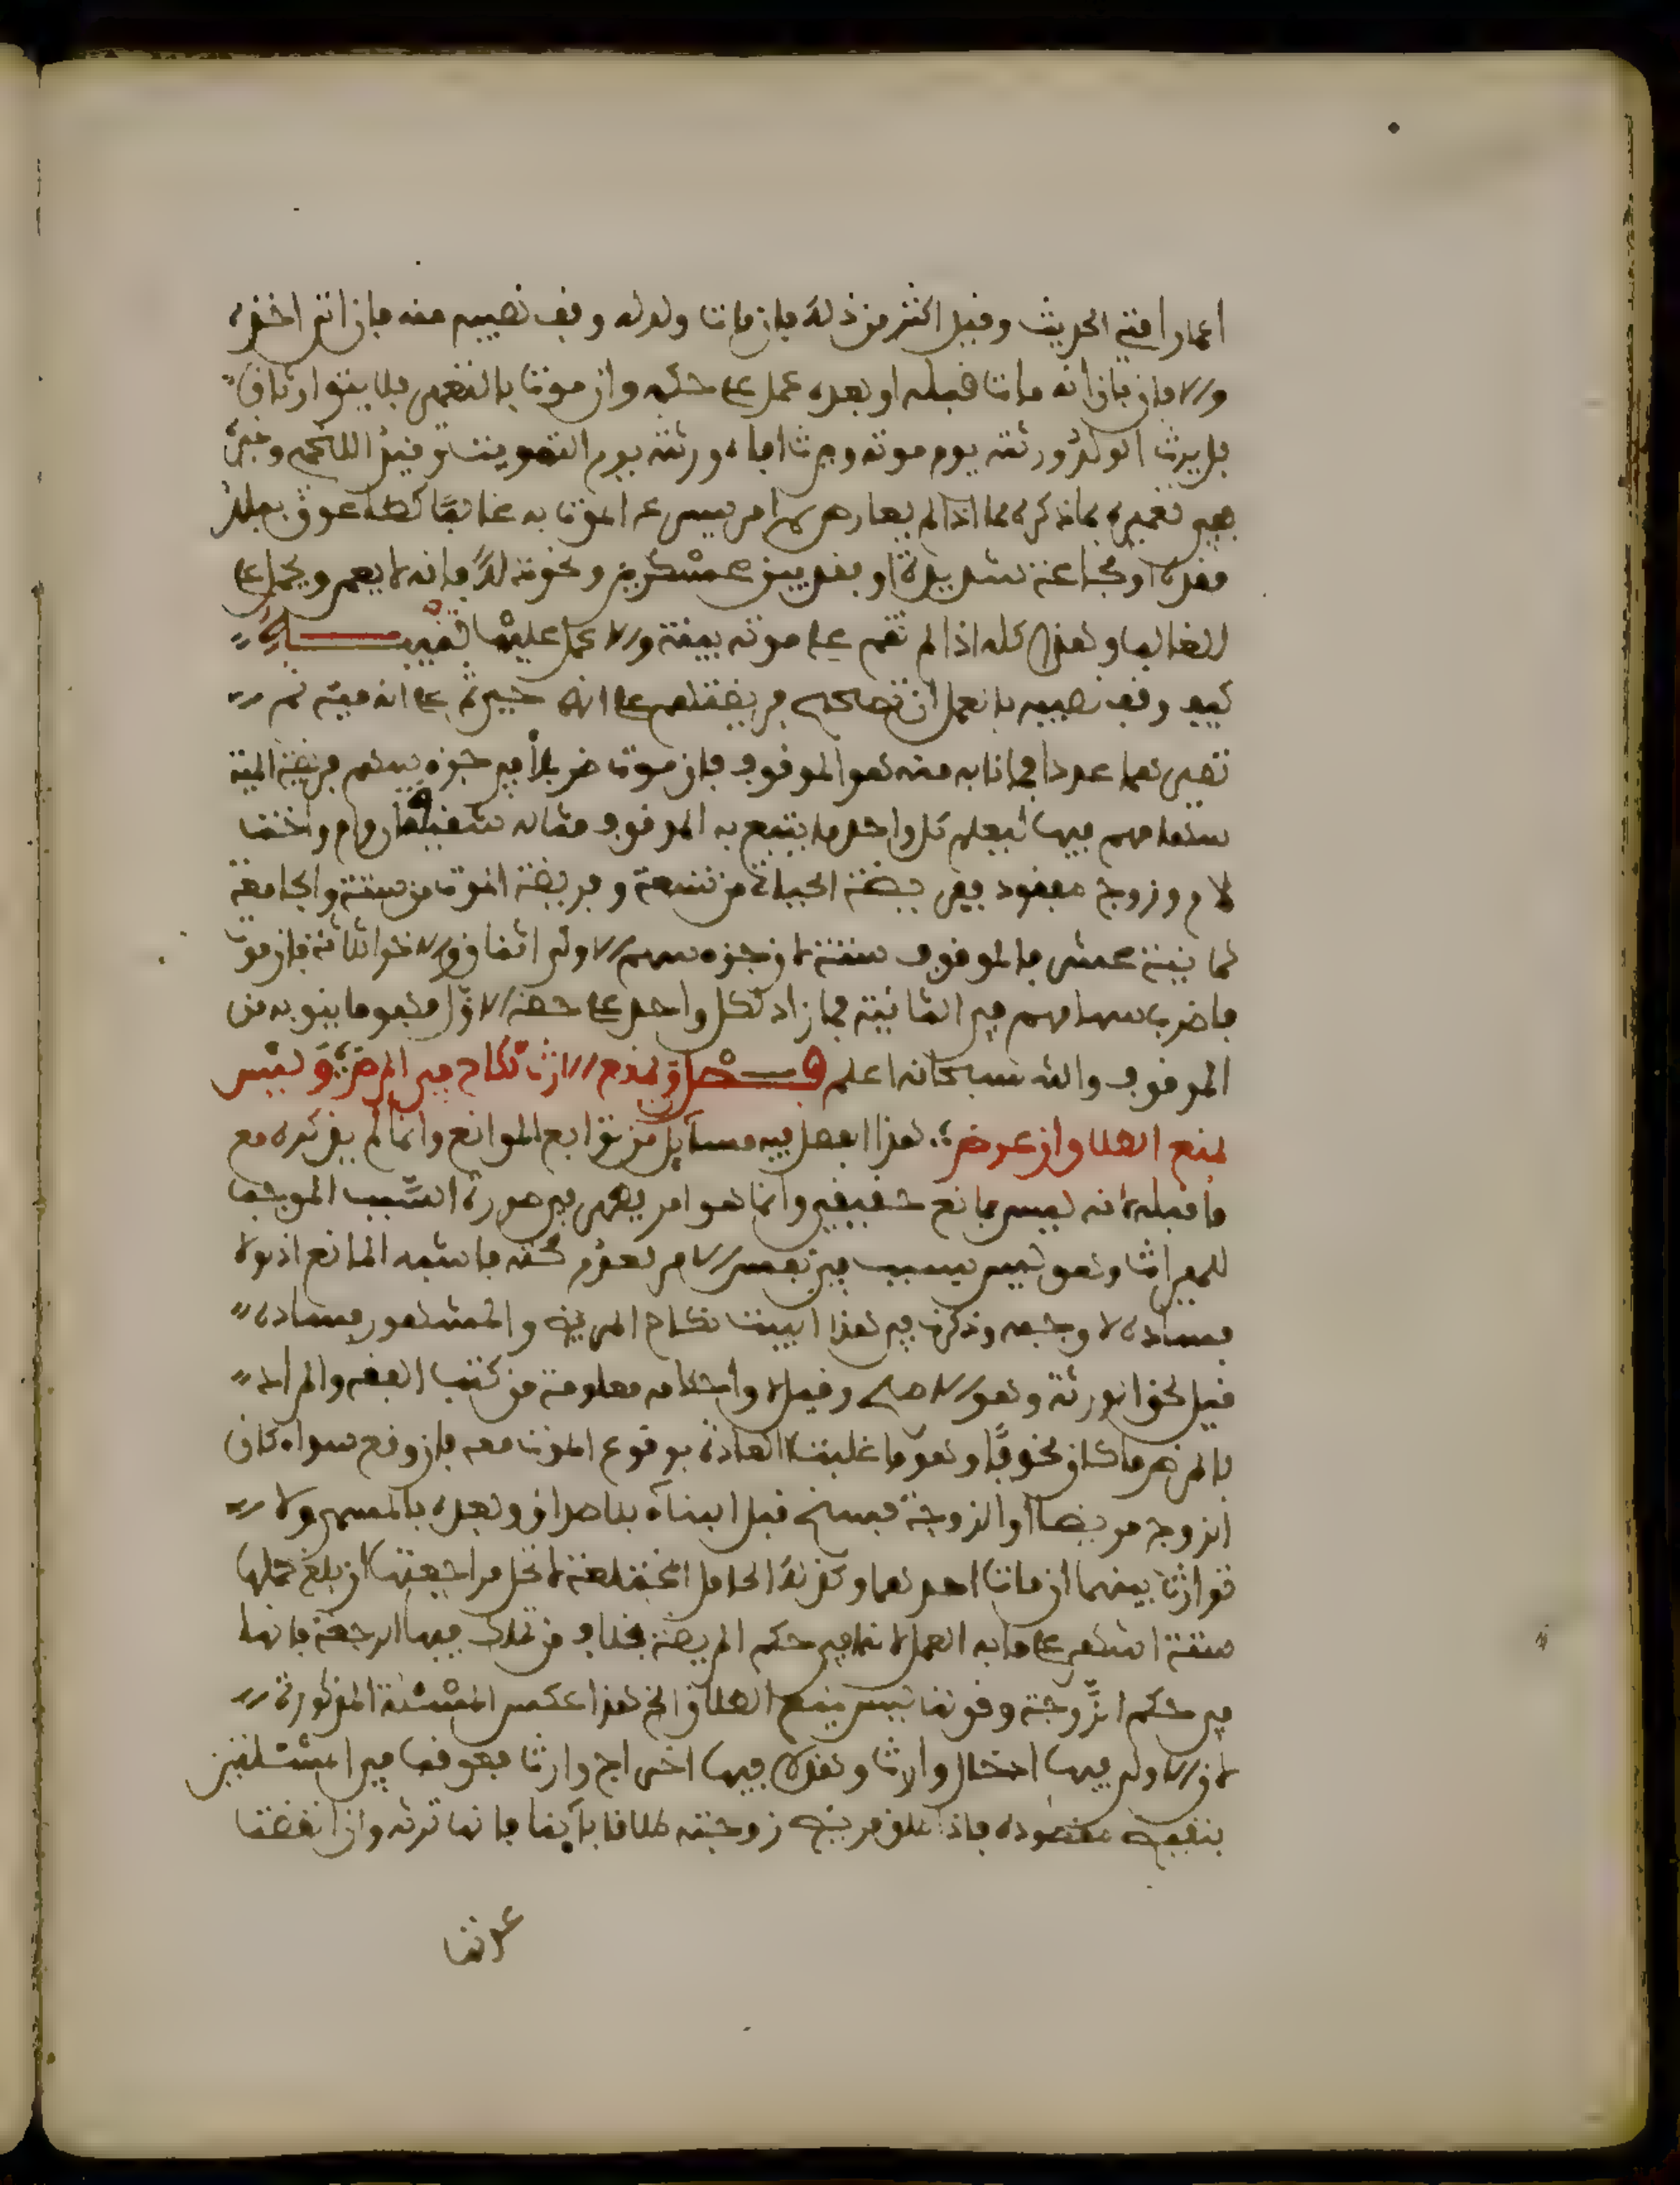 اعمار امتي الحديث وقيل اكثر من ذلك فان مات ولد له وقف نصيبه منه فان اتى اخذه
والا فان بان انه مات قبله او بعده عمل على حكمه وان موت بالتعمير فلا يتوارثان
بل يرث الولد ورثته يوم موته ويرث اباه ورثته يوم التمويت وقيد اللخمي وغيره
تعميره بما ذكر بما اذا لم يعارض امر يسرع الموت به غالبا كطاعون ببلد
فقده او مجاعة شديدة او بفقد بين عسكرين ونحو ذلك فانه لا يعمر ويحمل على
الغالب وهذا كله اذا لم تقم على موته بينة والا عمل عليها تنبيه
كيف وقف نصيبه بالعمل ان تصحح فريضتهم على انه حي ثم على انه ميت ثم
تصير لهما عددا فما نابه منه هو الموقوف فان موت ضربا في جزء سهم فريضة الميت
سهامهم فيها ليعلم كل واحد ما يتبع به الموقوف مثاله شقيقة وام واخت
لام وزوج مفقود ففريضة الحياة من تسعة وفريضة الموت من ستة والجامعة
ثمانية عشر فالموقوف ستة لان جزء سهم الاولى اثنان والاخرى ثلاثة فان موت
فاضرب سهامهم في الثانية فما زاد لكل واحد على حصة الاول فهو ما ينوبه من
الموقوف والله سبحانه اعلم فصل ويمنع الارث نكاح في المرض وليس
يمنع الطلاق ان عرض هذا الفصل فيه مسايل من توابع الموانع وانما لم يذكره مع
ما قبله لانه ليس بمانع حقيقي وانما هو امر يظهر في صورة السبب الموجب
للميراث وهو ليس بسبب في نفس الامر لعدم صحته فاشبه المانع اذ لولا
فساده لاوجبه وذكر في هذا البيت نكاح المريض والمشهور فساده
قيل لحق الورثة وهو الاصح وقيل لا واحكامه معلومة من كتب الفقه والمراد
بالمرض ما كان مخوفا وهو ما غلبت العادة بوقوع الموت معه فان وقع سواء كان
الزوج مريضا او الزوجة فسخ قبل البناء بلا صداق وبعده بالمسمى ولا
توارث بينهما ان مات احدهما وكذلك الحامل المختلعة لا تحل مراجعتها ان بلغ حملها
ستة اشهر على ما به العمل لانها في حكم المريضة بخلاف من تملك فيها الرجعة فانها
في حكم الزوجة وقولنا ليس يمنع الطلاق الخ هذا عكس المسئلة المذكورة
لان الاولى فيها ادخال وارث وهذه فيها اخراج وارث فعوقب في المسئلتين
بنقيض مقصوده فاذا طلق مريض زوجته طلاقا باينا فانها ترثه وان انقضت
عدتها